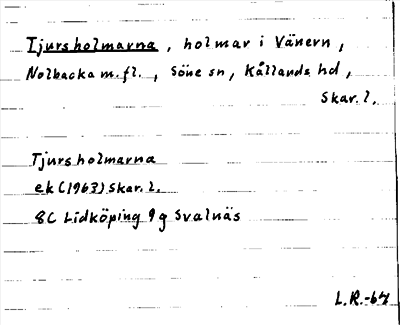 Tjursholmarna, holmar i Vänern,
Nolbacka m.fl., Söne sn, Kållands hd,
Skar. l.
Tjursholmarna
ek (1963) Skar. l.
8C Lidköping 9g Svalnäs
L.R.-67